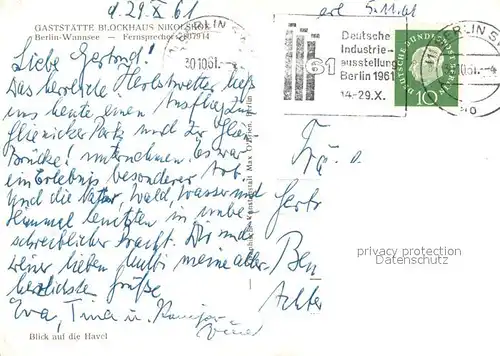 d. 29. X. 61
erl. 5.11.61
GASTSTÄTTE BLOCKHAUS NIKOLSKOE
Berlin-Wannsee - Fernsprecher 807914
Liebe Gertrud!
Das herrliche Herbstwetter ließ
uns heute einen Ausflug zum
Glienicker Park und zur Glien.
Brücke! unternehmen. Es war
ein Erlebnis besonderer Art.
Und die Natur, Wald, Wasser und
Himmel leuchten in unbe-
schreiblicher Pracht. Dir und
Deiner lieben Mutti meine aller-
herzlichste Grüße
Eva, Tina u.
Blick auf die Havel
BERLIN
30.10.61.-4
Deutsche
Industrie-
ausstellung
Berlin 1961
14.-29.X.
61
BERLIN S
.10.61.-4
DEUTSCHE BUNDESPOST BERLIN
10
Frau
Gertr
Ber
Alter
privacy protection
Datenschutz